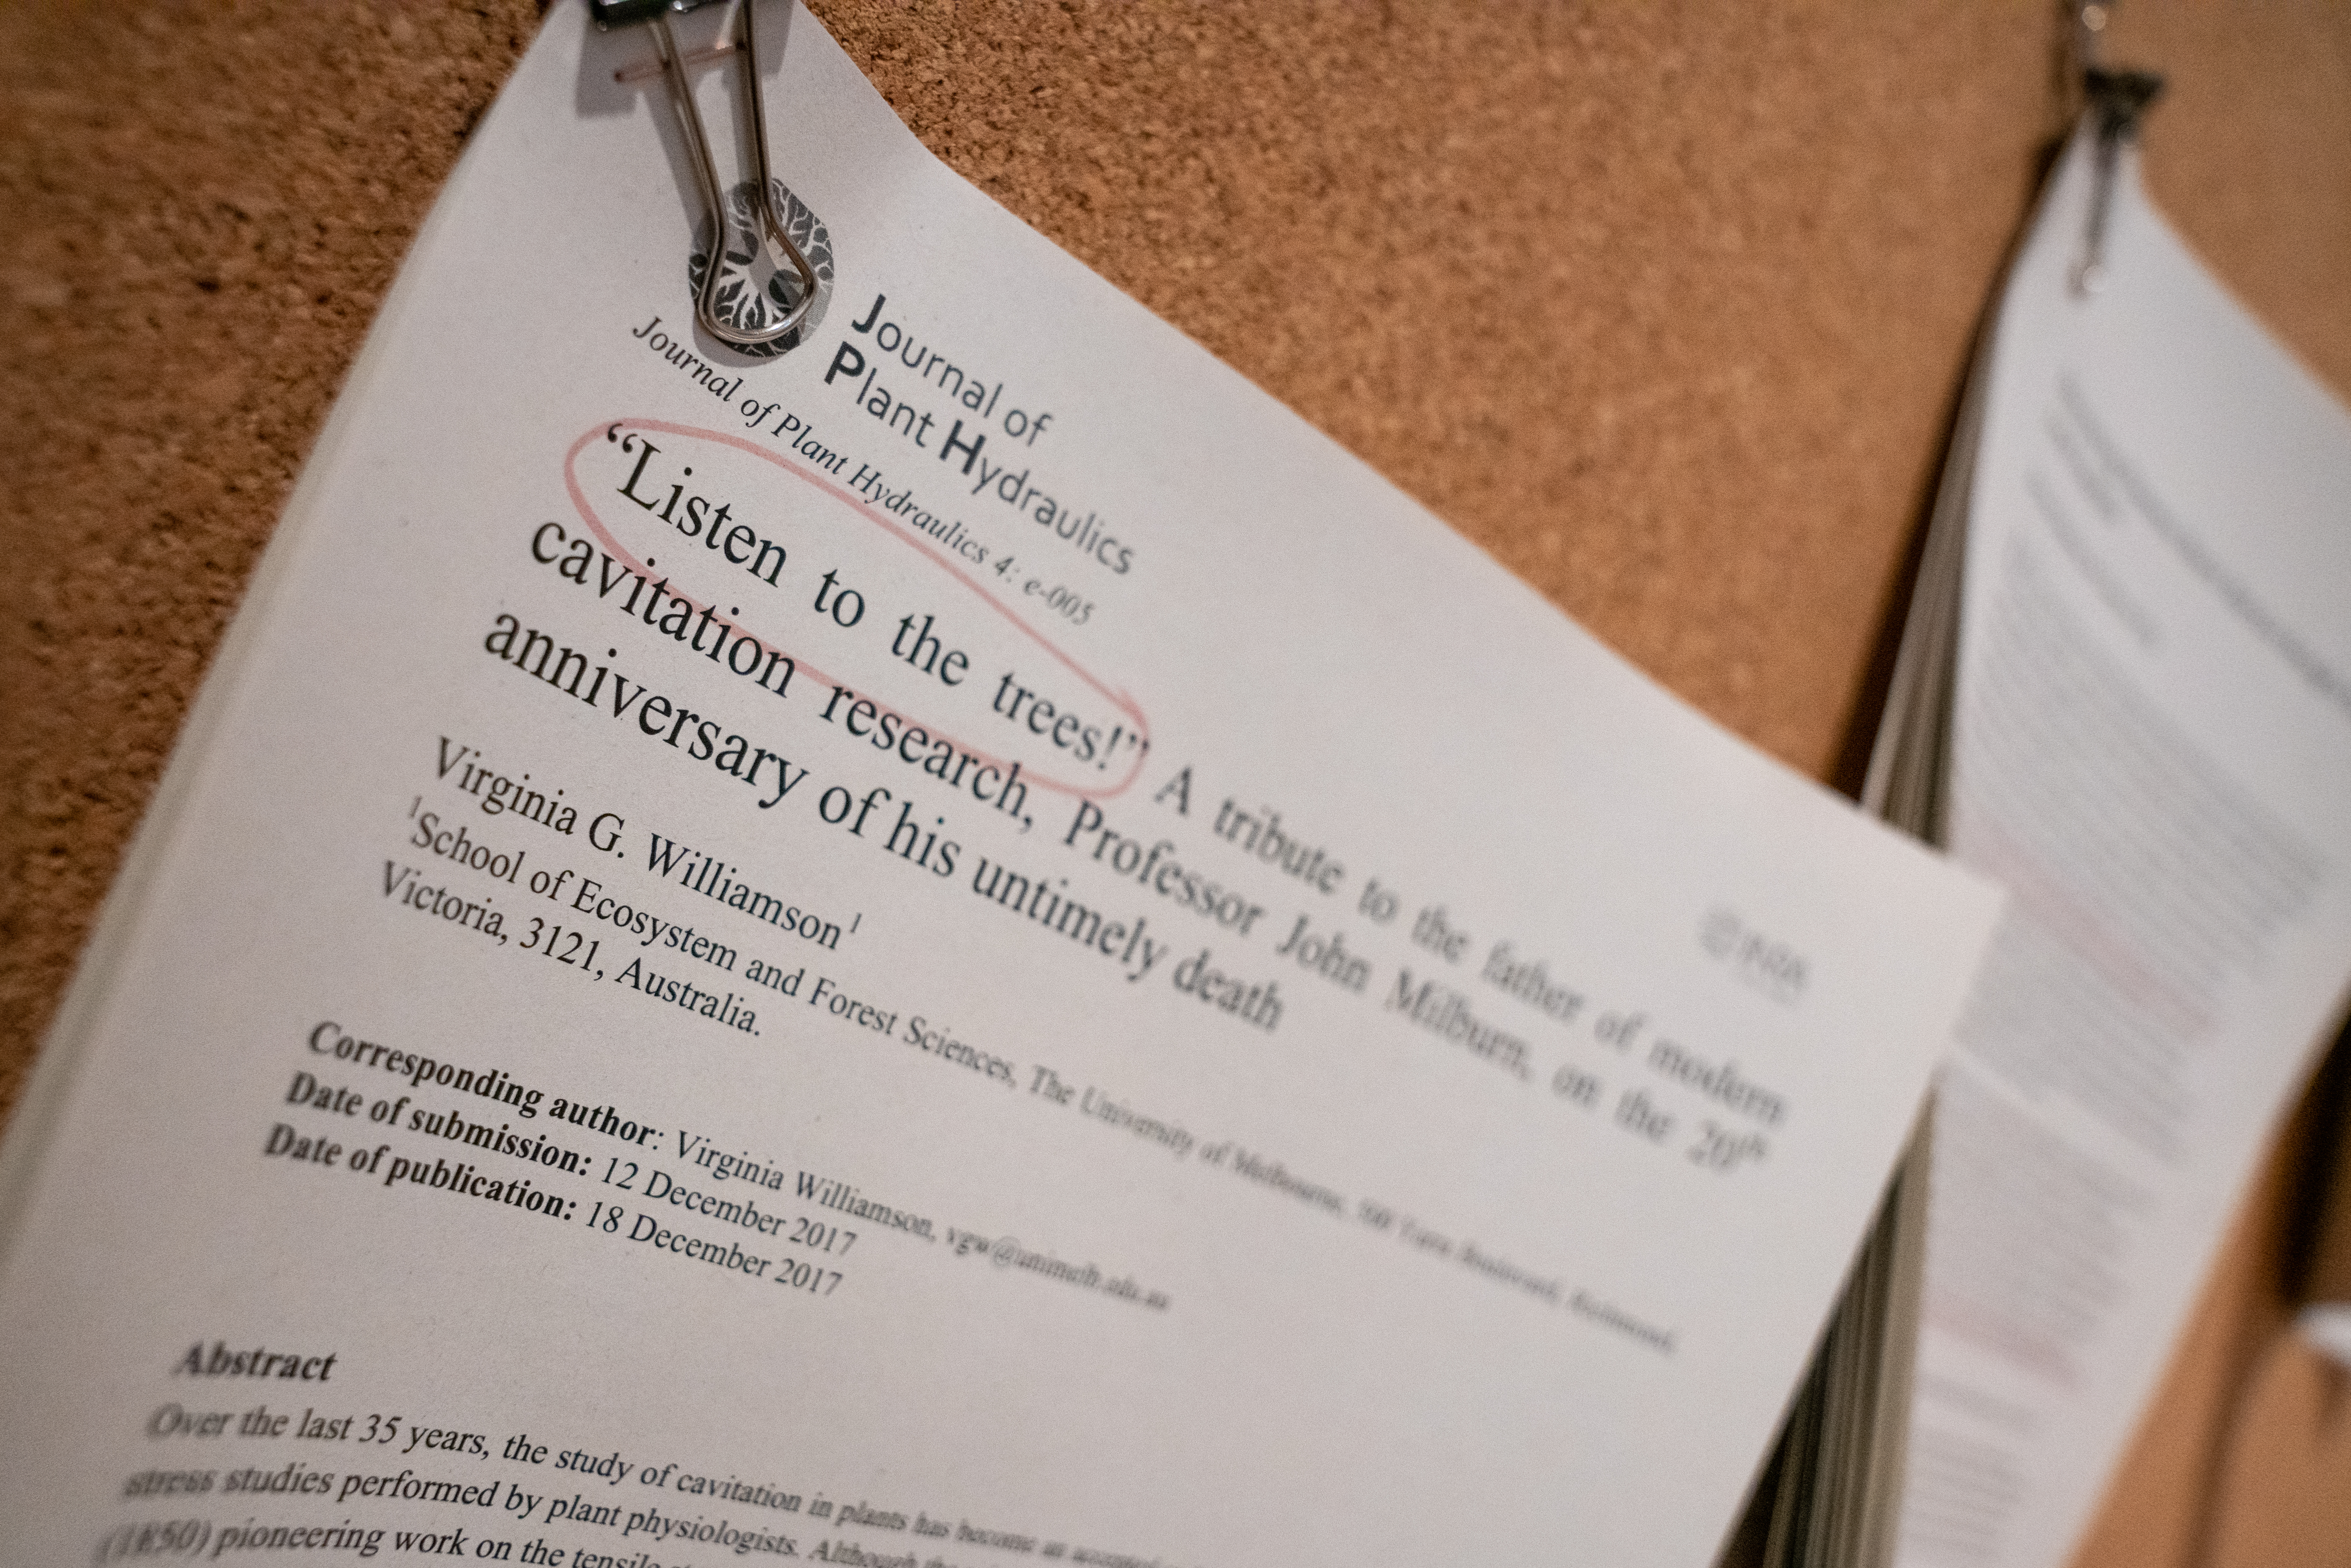 Journal of
Plant Hydraulics
Journal of Plant Hydraulics 4: e-005
“Listen to the trees!” A tribute to the father of modern
cavitation research, Professor John Milburn, on the 20th
anniversary of his untimely death
Virginia G. Williamson1
1School of Ecosystem and Forest Sciences, The University of Melbourne, 500 Yarra Boulevard, Richmond,
Victoria, 3121, Australia.
Corresponding author: Virginia Williamson, vgw@unimelb.edu.au
Date of submission: 12 December 2017
Date of publication: 18 December 2017
Abstract
Over the last 35 years, the study of cavitation in plants has become an accepted
stress studies performed by plant physiologists. Although
(1850) pioneering work on the tensile